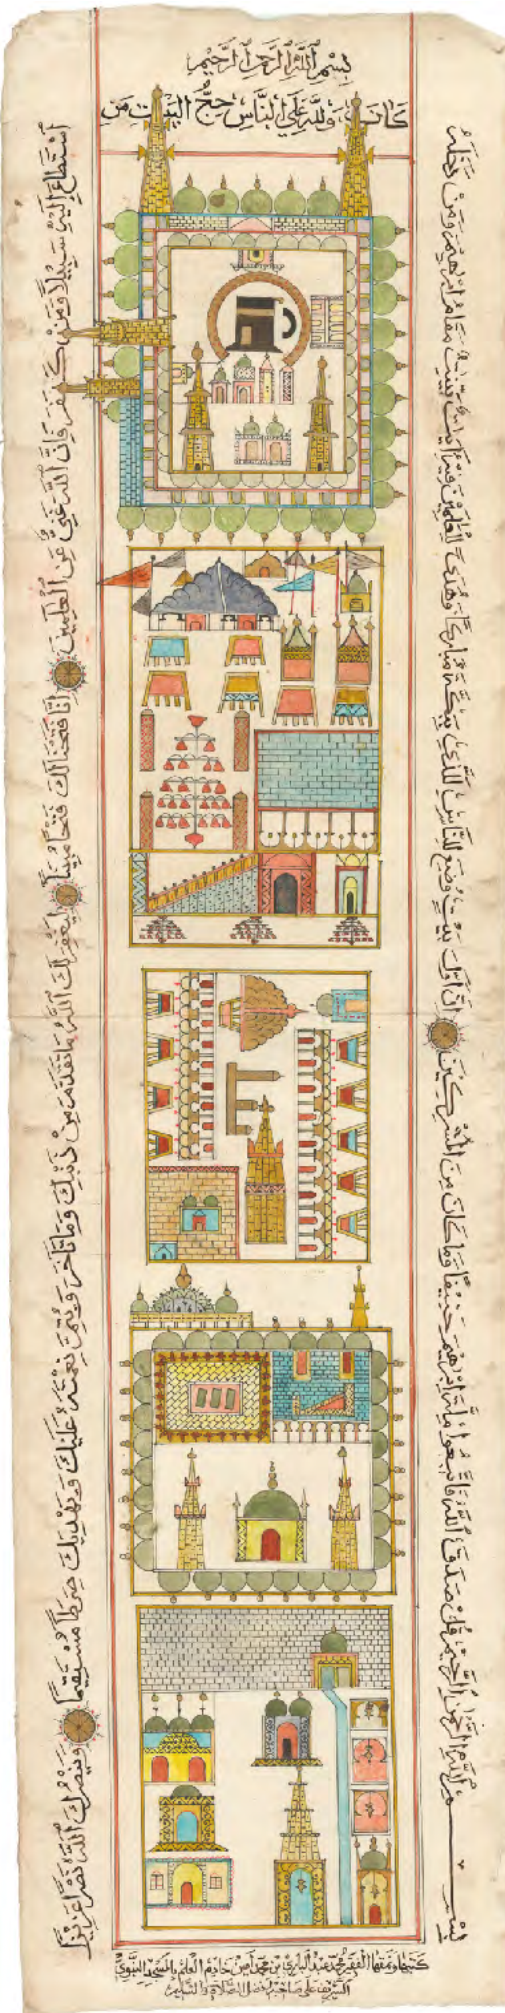 بِسْمِ ٱللَّهِ ٱلرَّحْمٰنِ ٱلرَّحِيْمِ
بِسْمِ ٱللَّهِ ٱلرَّحْمٰنِ ٱلرَّحِيْمِ قُلْ صَدَقَ ٱللَّهُ فَاتَّبِعُوا مِلَّةَ إِبْرٰهِيْمَ حَنِيْفًا وَمَا كَانَ مِنَ الْمُشْرِكِيْنَ إِنَّ أَوَّلَ بَيْتٍ وُضِعَ لِلنَّاسِ لَلَّذِيْ بِبَكَّةَ مُبَارَكًا وَهُدًى لِلْعٰلَمِيْنَ فِيْهِ آيٰتٌ بَيِّنٰتٌ مَقَامُ إِبْرٰهِيْمَ وَمَنْ دَخَلَهُ
كَانَ آمِنًا وَلِلّٰهِ عَلَى النَّاسِ حِجُّ الْبَيْتِ مَنِ
اسْتَطَاعَ إِلَيْهِ سَبِيْلًا وَمَنْ كَفَرَ فَإِنَّ اللّٰهَ غَنِيٌّ عَنِ الْعٰلَمِيْنَ إِنَّا فَتَحْنَا لَكَ فَتْحًا مُبِيْنًا لِيَغْفِرَ لَكَ اللّٰهُ مَا تَقَدَّمَ مِنْ ذَنْبِكَ وَمَا تَأَخَّرَ وَيُتِمَّ نِعْمَتَهُ عَلَيْكَ وَيَهْدِيَكَ صِرَاطًا مُسْتَقِيْمًا وَيَنْصُرَكَ اللّٰهُ نَصْرًا عَزِيْزًا
كتبها ونمقها الفقير محمد عبد الباري بن محمد أمين خادم العلم بالمسجد النبوي
الشريف على صاحبه أفضل الصلاة والتسليم